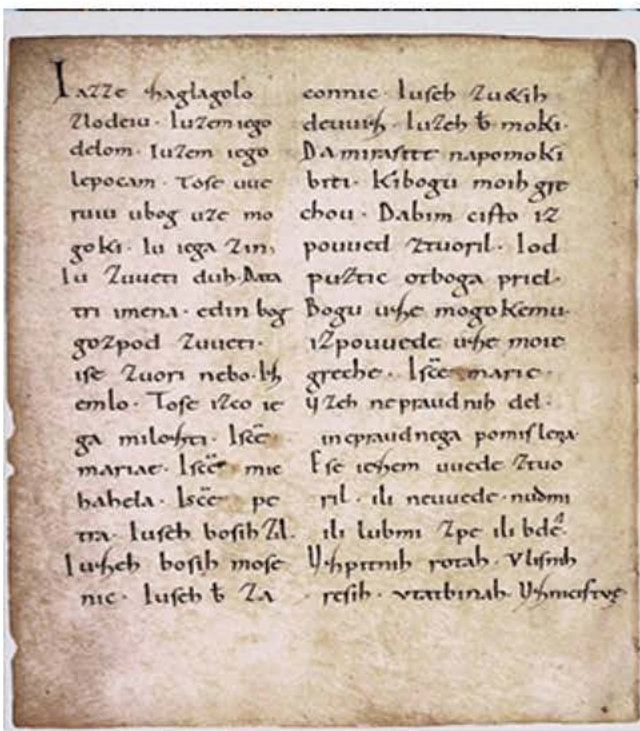 Iazze zaglagolo
zlodeiu · Iuzem iego
delom · Iuzem iego
lepocam · Tose uue
ruiu ubog uze mo
goki · Iu iega zin,
Iu zuueti duh · Data
tri imena · edin bog
gozpod zuueti ·
ise zuori nebo · Iz
emlo · Tose izco ie
ga milozti · Iscē
mariae · Iscē mie
hahela · Iscē pe
tra · Iuseh bosih zil ·
Iuzeh bosih mose
nic · Iuseh b̄ za
connic · Iuseh zu&ih
deuuiz · Iuzeh b̄ moki ·
Da mirastte napomoki
biti · Kibogu moih gre
chou · Dabim cisto iz
pouued ztuoril · Iod
puztic otboga priel ·
Bogu uze mogokemu ·
izpouuede uze moie
greche · Iscē marie ·
Uzeh nepraudnih del ·
inepraudnega pomislena
Ese iezem uuede ztuo
ril · ili neuuede · nudmi
ili lubmi zpe ili bde ·
Uzpitnih rotah · Vlisnih
resih · vtatbinah · Uznicistve